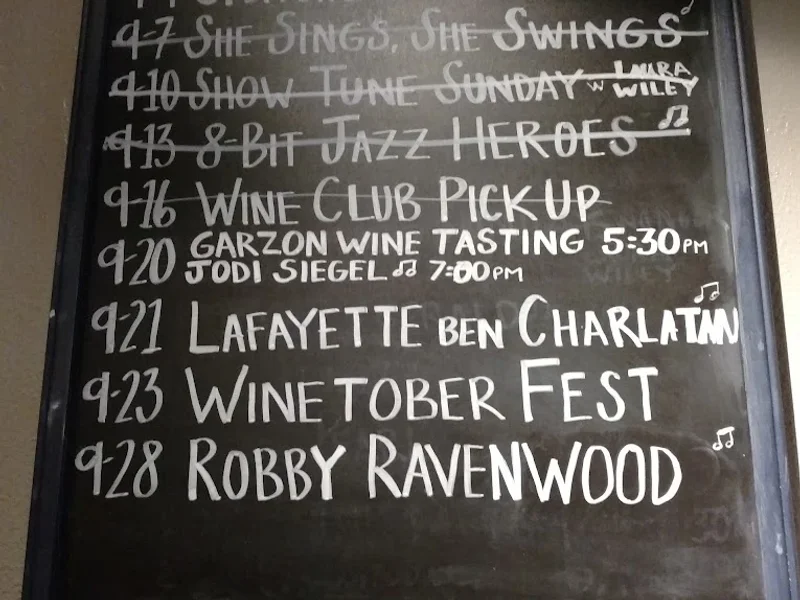 9-7 SHE SINGS, SHE SWINGS
9-10 SHOW TUNE SUNDAY W LAURA WILEY
9-13 8-BIT JAZZ HEROES
9-16 WINE CLUB PICK UP
9-20 GARZON WINE TASTING 5:30PM
JODI SIEGEL 7:00PM
9-21 LAFAYETTE BEN CHARLATAN
9-23 WINETOBER FEST
9-28 ROBBY RAVENWOOD